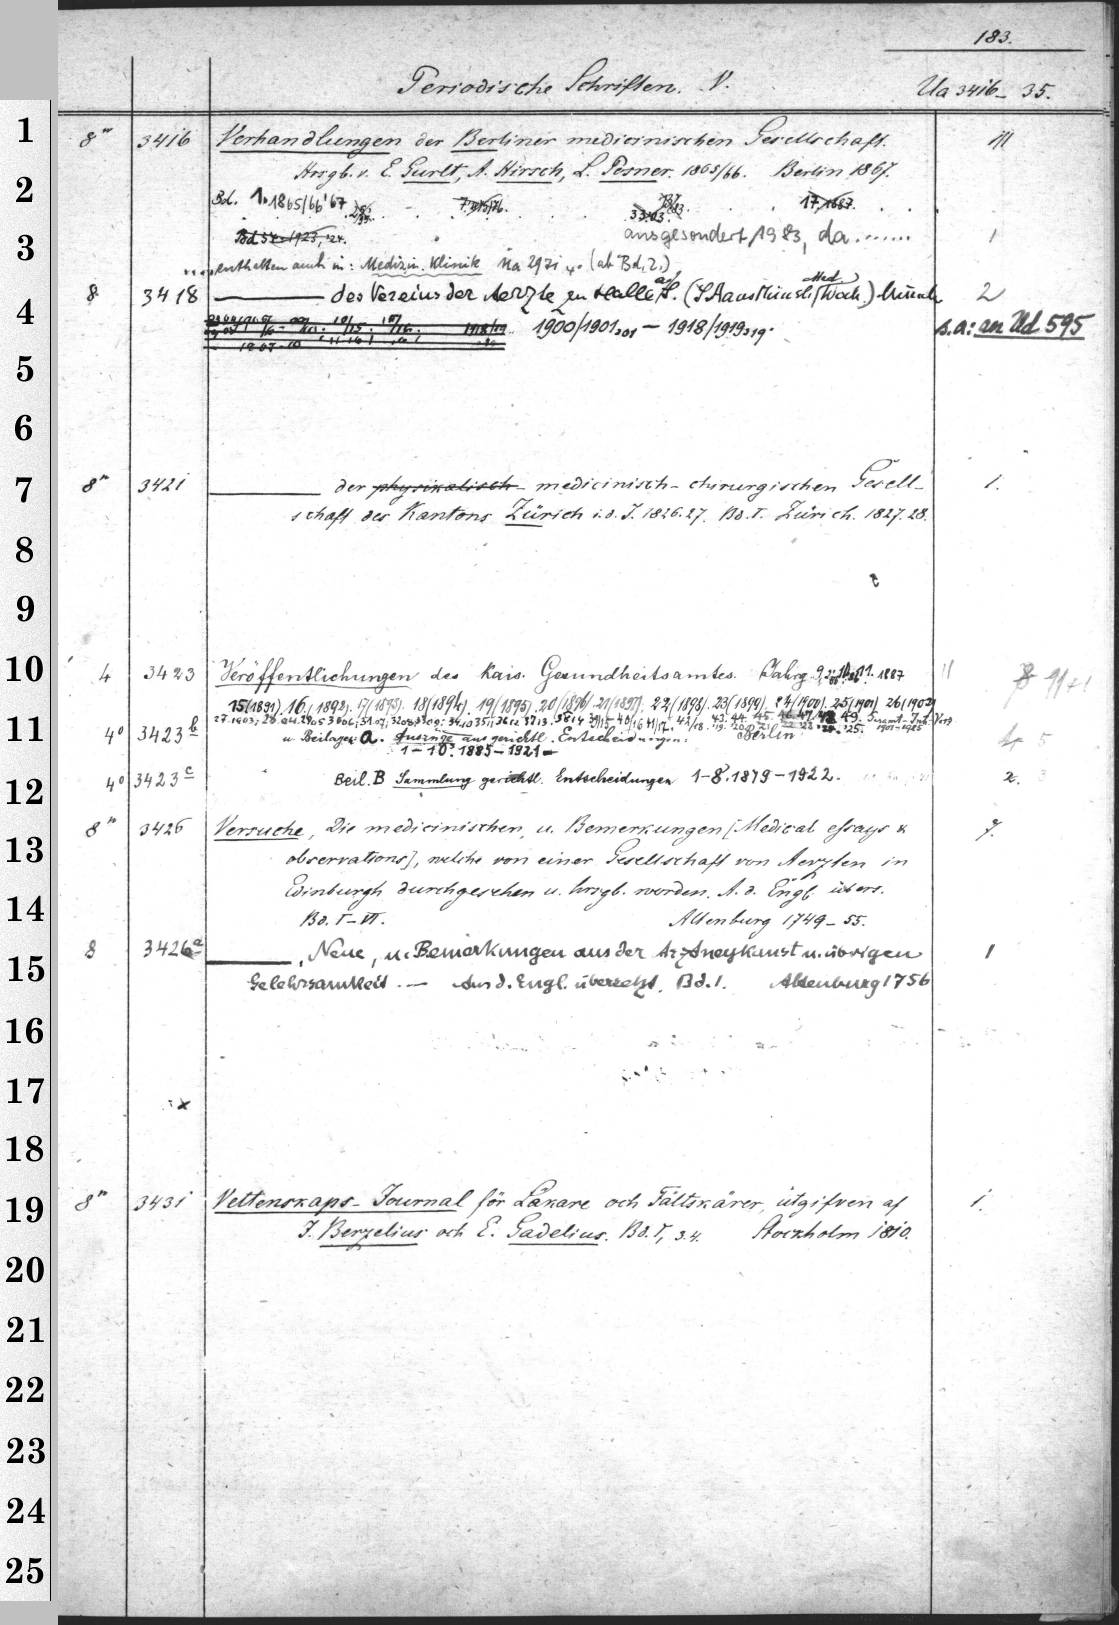 183.
Periodische Schriften. V. Ua 3416-35.
1
8° 3416 Verhandlungen der Berliner medicinischen Gesellschaft.
2
Hrsgb. v. E. Gurlt, A. Hirsch, L. Posner. 1865/66. Berlin 1867.
Bd. 1. 1865/66 '67
3
Bd 54. 1923, '24. ausgesondert 1983, da ....... 1
enthalten auch in: Medizin. Klinik Ua 2971 4° (ab Bd. 2.)
4
8 3418 ——— des Vereins der Aerzte zu Halle a/S. 2
1900/1901, 901 — 1918/1919, 919. s.a: an Ud 595
5
6
7
8° 3421 ——— der physikalisch- medicinisch-chirurgischen Gesell- 1.
schaft des Kantons Zürich i. d. J. 1826.27. Bd. I. Zürich. 1827.28.
8
9
10
4 3423 Veröffentlichungen des Kais. Gesundheitsamtes. Jahrg. 9, 11. 1887
15(1891). 16(1892). 17(1893). 18(1894). 19(1895). 20(1896). 21(1897). 22(1898). 23(1899). 24(1900). 25(1901) 26(1902)
11
4° 3423 b u. Beilagen: A. Auszüge aus gerichtl. Entscheidungen. Berlin 5
1-10. 1885-1921-
12
4° 3423 c Beil. B Sammlung gerichtl. Entscheidungen 1-8. 1879-1922. 2.
13
8° 3426 Versuche, Die medicinischen, u. Bemerkungen [Medical essays & 7.
observations], welche von einer Gesellschaft von Aerzten in
14
Edinburgh durchgesehen u. hrsgb. worden. A. d. Engl. übers.
Bd. I-VI. Altenburg 1749-55.
15
8 3426 a ———, Neue, u. Bemerkungen aus der Arzneykunst u. übrigen 1
Gelehrsamkeit. — Aus d. Engl. übersetzt. Bd. 1. Altenburg 1756
16
17
x
18
19
8° 3431 Vettenskaps-Journal för Läkare och Fältskärer, utgifven af 1.
J. Berzelius och E. Gadelius. Bd. I, 3.4. Stockholm 1810.
20
21
22
23
24
25